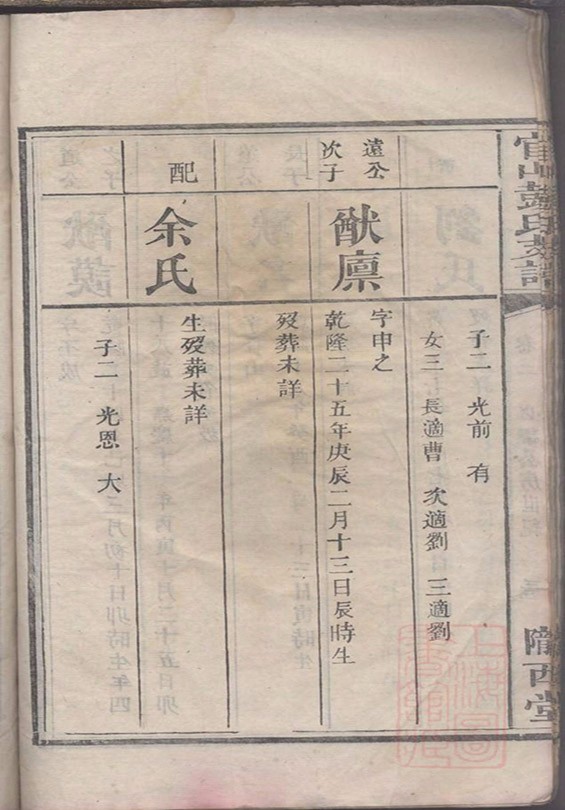 宜山彭氏支譜
隴西堂
子二 光前 有
女三 長適曹 次適劉 三適劉
遠公
次子
猷廪
字申之
乾隆二十五年庚辰二月十三日辰時生
歿葬未詳
配
余氏
生歿葬未詳
子二 光恩 大